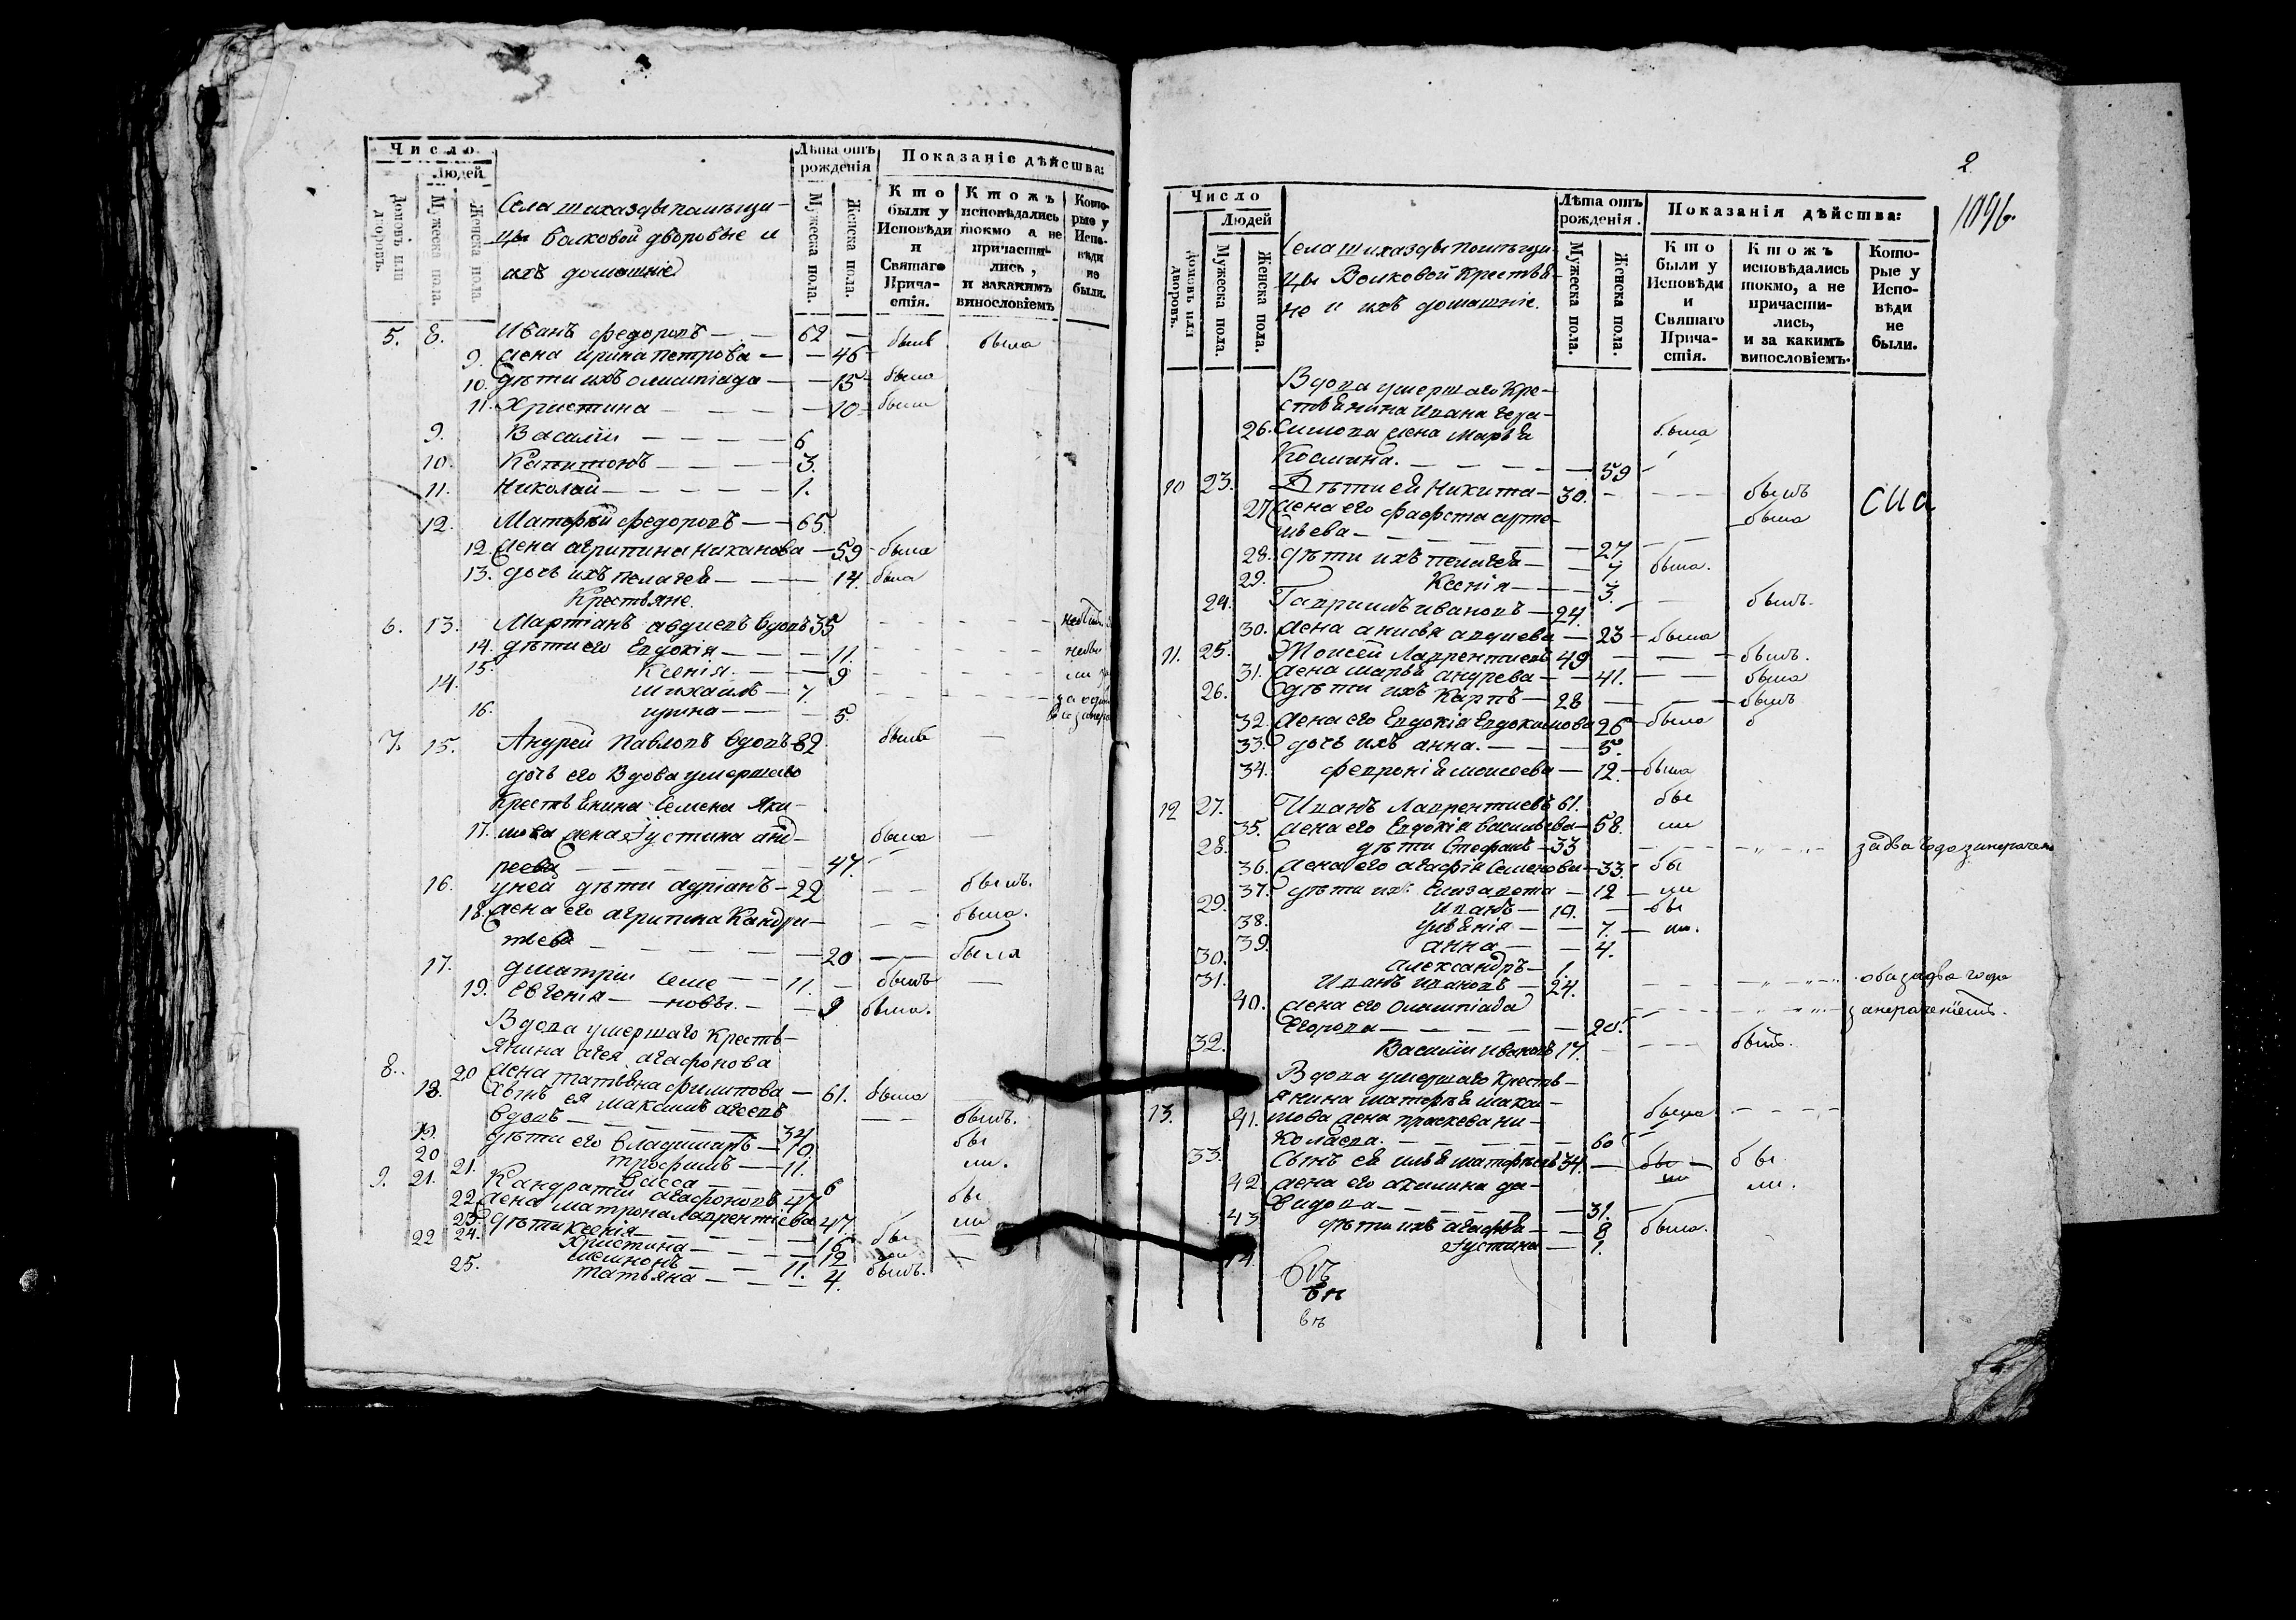 Число
Людей
Домовъ или дворовъ.
Мужеска пола.
Женска пола.
Села помѣщи-
цы Волковой дворовые и
ихъ домашніе
Лѣта отъ рожденія
Мужеска пола.
Женска пола.
Показаніе дѣйства:
Кто были у Исповѣди и Святаго Прича-стія.
Ктожъ исповѣдались токмо а не причасти-лись, и закакимъ винословіемъ
Кото-рые у Испо-вѣди не были.
5. 8. Иванъ Федоровъ — 62 — былъ была
9. Жена Ирина Петрова — — 46
10. Дѣти ихъ Олимпіада — — 15 — была
11. Христина — — — 10 — была
9. Василій — — — — 6
10. Капитонъ — — — — 3.
11. Николай — — — — 1.
12. Матфѣй Федоровъ — — 65.
12. Жена Агрипина — 59 — была
13. дочь ихъ Пелагея — — 14. была
Крестьяне.
6. 13. Мартіанъ Авдиевъ вдовъ 35
14. дѣти его Евдокія — — — 11.
15. Ксенія — — 9
14. Михаилъ — 7.
16. Ирина — — 5.
7. 15. Андрей Павловъ вдовъ 82 былъ —
дочь его Вдова умершаго
Крестьянина Семена Яки-
17. мова жена Іустина Анд- была —
реева — — — — — 47.
16. у ней дѣти Адріанъ — 22 — — былъ.
18. Жена его Агрипина Кондра- — — была.
тьева — — — — 20 — — была
17. Дмитрій Семе — — 11. — былъ —
19. Евгенія — — новы. — — 9 была.
Вдова умершаго Кресть-
янина Агея Агафонова
8. 20 жена Татьяна Филипова — 61. была
18. Сынъ ея Максимъ Агеевъ
вдовъ — — — — 34 — — былъ.
19. дѣти его Владимиръ — 10 бы
20 Трофимъ — 11. ли.
21. Васса — — — 6
9. 21. Кандратій Агафоновъ 47 бы
22 Жена Матрона Лаврентіева 47. ли
23. дѣти Ксенія — — — 16 бы
24. Христина — — 12 ли
22 — 11. былъ.
25. Татьяна — — 4.
2
Число
Людей
Домовъ или дворовъ.
Мужеска пола.
Женска пола.
Села помѣщи-
цы Волковой Крестья-
не и ихъ домашніе.
Лѣта отъ рожденія.
Мужеска пола.
Женска пола.
Показанія дѣйства:
Кто были у Исповѣди и Святаго Прича-стія.
Ктожъ исповѣдались токмо, а не причасти-лись, и за какимъ винословіемъ.
Кото-рые у Испо-вѣди не были.
Вдова умершаго Кре-
стьянина Ивана Гера-
26. симова жена Марья была
Козмина. — — — — 59
10 23. Дѣти ей Никита — 30. — — — — былъ
27. Жена его Фаѵста Арте- была
мьева — — — — — 27
28. Дѣти ихъ Пелагея — — 7. была.
29. Ксенія — — — 3.
24. Гавриилъ Ивановъ — 24. былъ.
30. Жена Анисья Авдиева — 23 — была
11. 25. Моисей Лаврентиевъ 49 — — — былъ.
31. Жена Марья Андрева — — 41. — — была
26. Дѣти ихъ Карпъ — 28 — — былъ
32. Жена его Евдокія Евдокимова 26 — была б
33. дочь ихъ Анна. — — — 5.
34. Февронія Моисеева — 12. — была
12 27. Иванъ Лаврентиевъ 61. бы
35. Жена его Евдокія Васильева — 58. ли
28. дѣти Стефанъ — 33
36. Жена его Агафія Семенова — 33. бы
37. дѣти ихъ Елизавета — 12 — ли
29. Иванъ — 10. — бы
38. Уліянія — — 7. — ли.
39. Анна — — 4.
30. Александръ — 1.
31. Иванъ Ивановъ — 24. оби за два года
40. Жена его Олимпіада
Егорова — — — — — 20.
32. Василій Ивановъ 17. — — — былъ.
Вдова умершаго Кресть-
янина Матфея Макси-
13. 41. мова жена Праскева Ни- была — — — —
колаева. — — — — 60
33. Сынъ ея Илья Матфѣевъ 34. — бы — бы
42. Жена его Акилина Да- ли ли.
видова — — — — 31.
43. дѣти ихъ Агафья — — 8 была.
44. Іустина — 1.